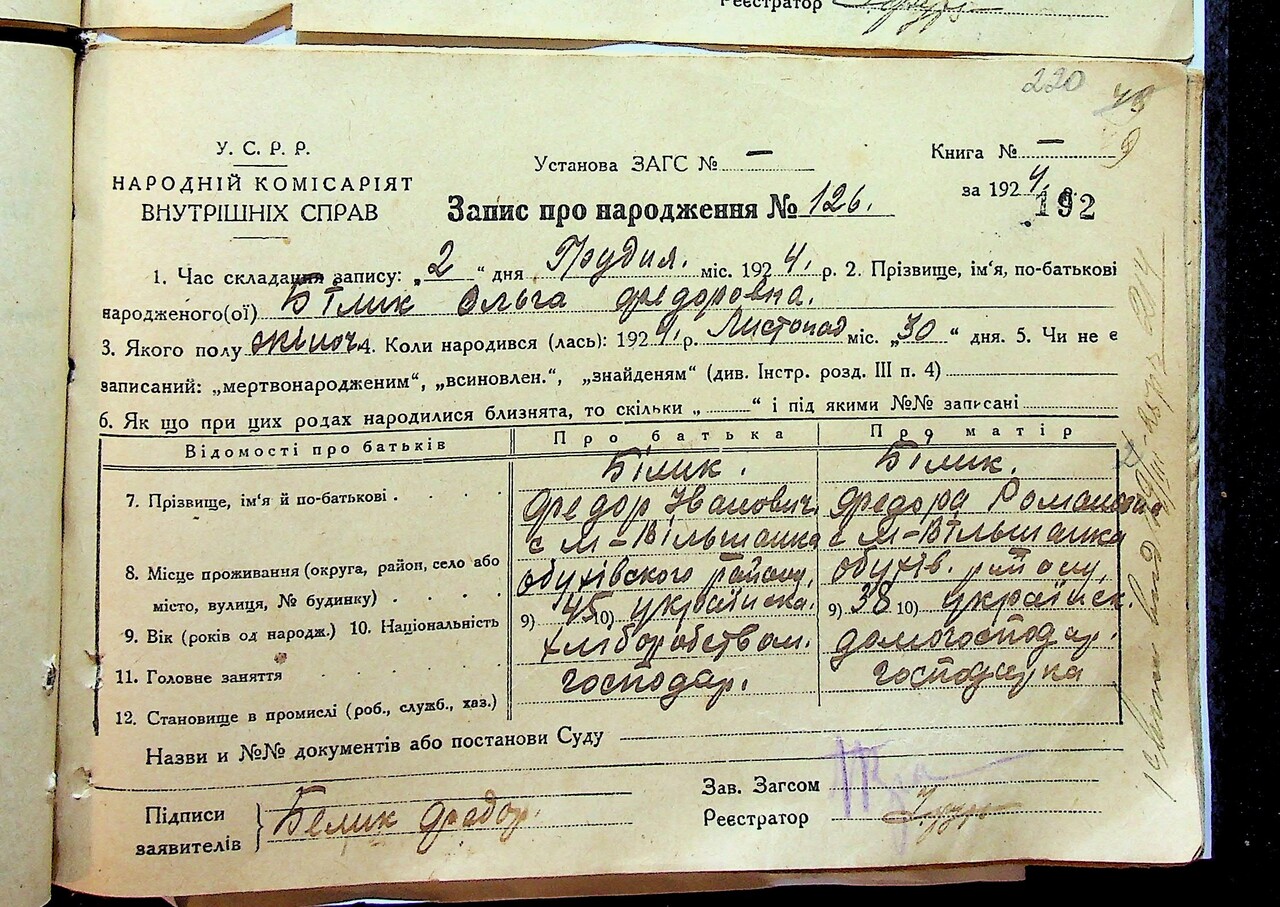 Реєстратор
220
У. С. Р. Р.
НАРОДНІЙ КОМІСАРІЯТ
ВНУТРІШНІХ СПРАВ
Установа ЗАГС № —
Книга № —
за 1924 р.
192
Запис про народження № 126.
1. Час складання запису: „2“ дня Грудня. міс. 1924. р. 2. Прізвище, ім'я, по-батькові
народженого(ої) Білик Ольга Федоровна.
3. Якого полу жіноч. 4. Коли народився (лась): 1924 р. Листопад міс. „30“ дня. 5. Чи не є
записаний: „мертвонародженим“, „всиновлен.“, „знайденям“ (див. Інстр. розд. III п. 4)
6. Як що при цих родах народилися близнята, то скільки „ “ і під якими №№ записані
Відомості про батьків Про батька Про матір
7. Прізвище, ім'я й по-батькові Білик. Білик.
Федор Іванович Федора Романовна
8. Місце проживання (округа, район, село або місто, вулиця, № будинку) с М-Вільшанка с М-Вільшанка
обухівського району, обухів. району,
9. Вік (років од народж.) 10. Національність 9) 45 10) українська. 9) 38 10) українск.
11. Головне заняття хліборобством. домогосподар.
12. Становище в промислі (роб., служб., хаз.) господар. господарка
Назви и №№ документів або постанови Суду
Підписи
заявителів
Белик Федор.
Зав. Загсом
Реєстратор